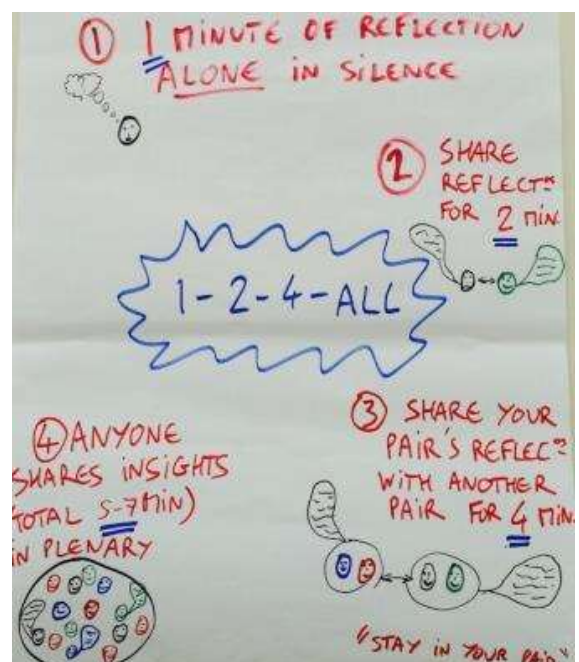 ① 1 MINUTE OF REFLECTION
ALONE IN SILENCE
② SHARE
REFLECTᵒⁿ
FOR 2 MIN
1-2-4-ALL
③ SHARE YOUR
PAIR'S REFLECᵒⁿ
WITH ANOTHER
PAIR FOR 4 MIN.
"STAY IN YOUR PAIR"
④ ANYONE
SHARES INSIGHTS
(TOTAL 5-7 MIN)
IN PLENARY